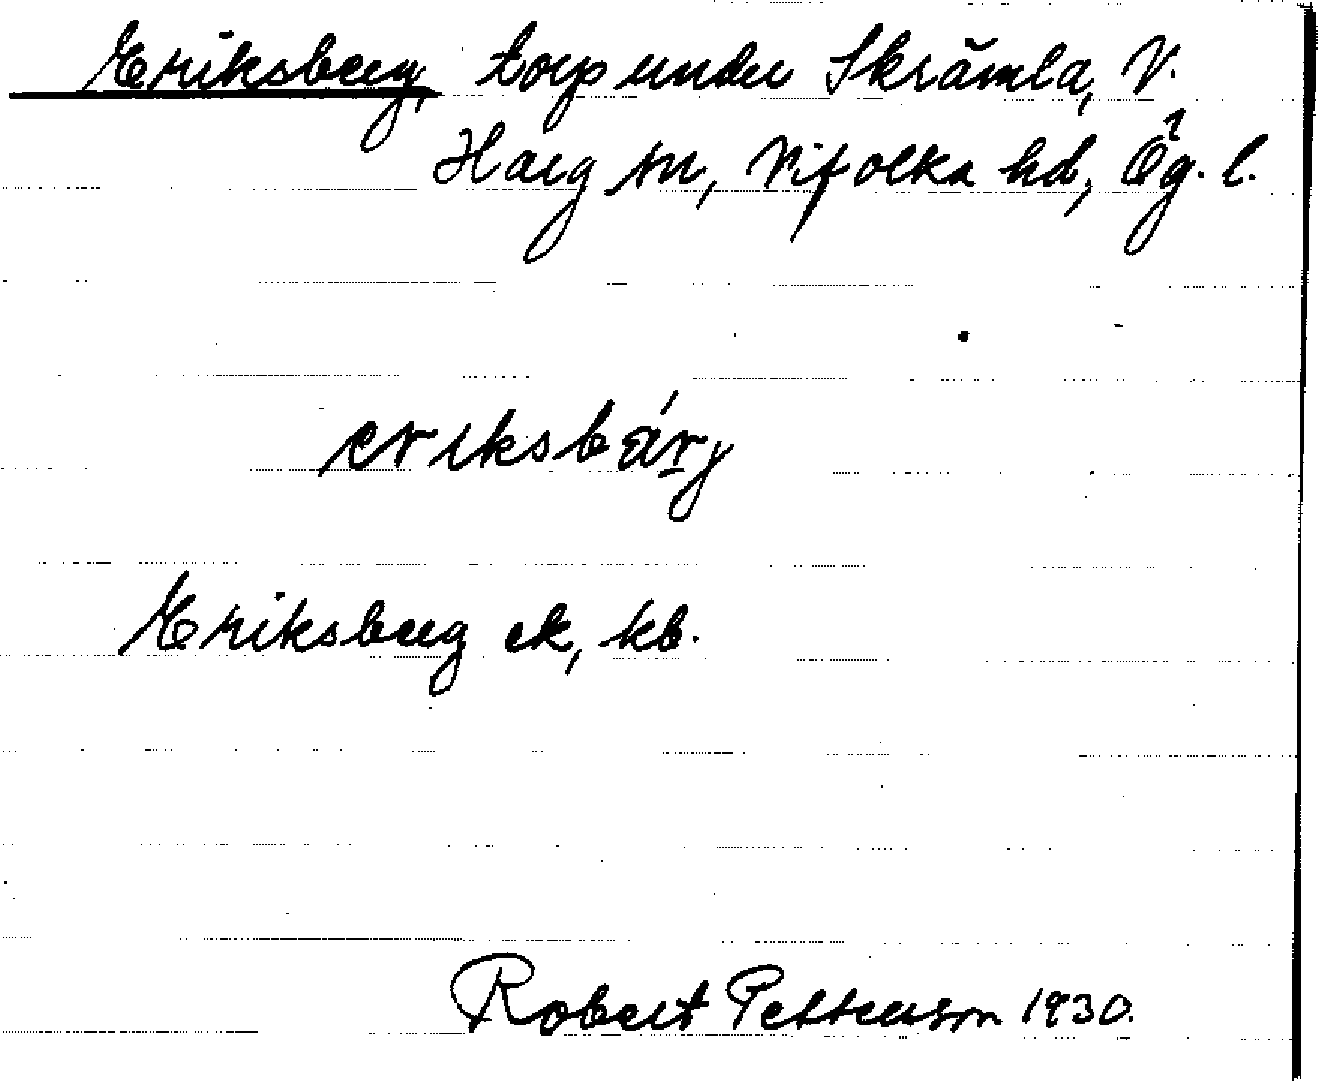 Eriksberg, torp under Skrämla, V.
Harg sn, Vifolka hd, Ög. l.
eriksbärj
Eriksberg ek, kb.
Robert Pettersson 1930.